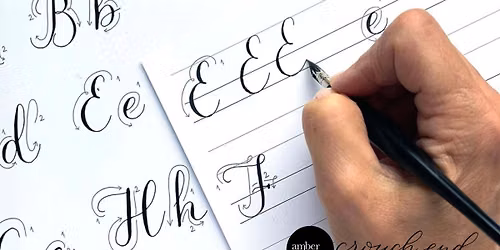 B b
E E E e
E e
d
F
H h
amber
crouch end